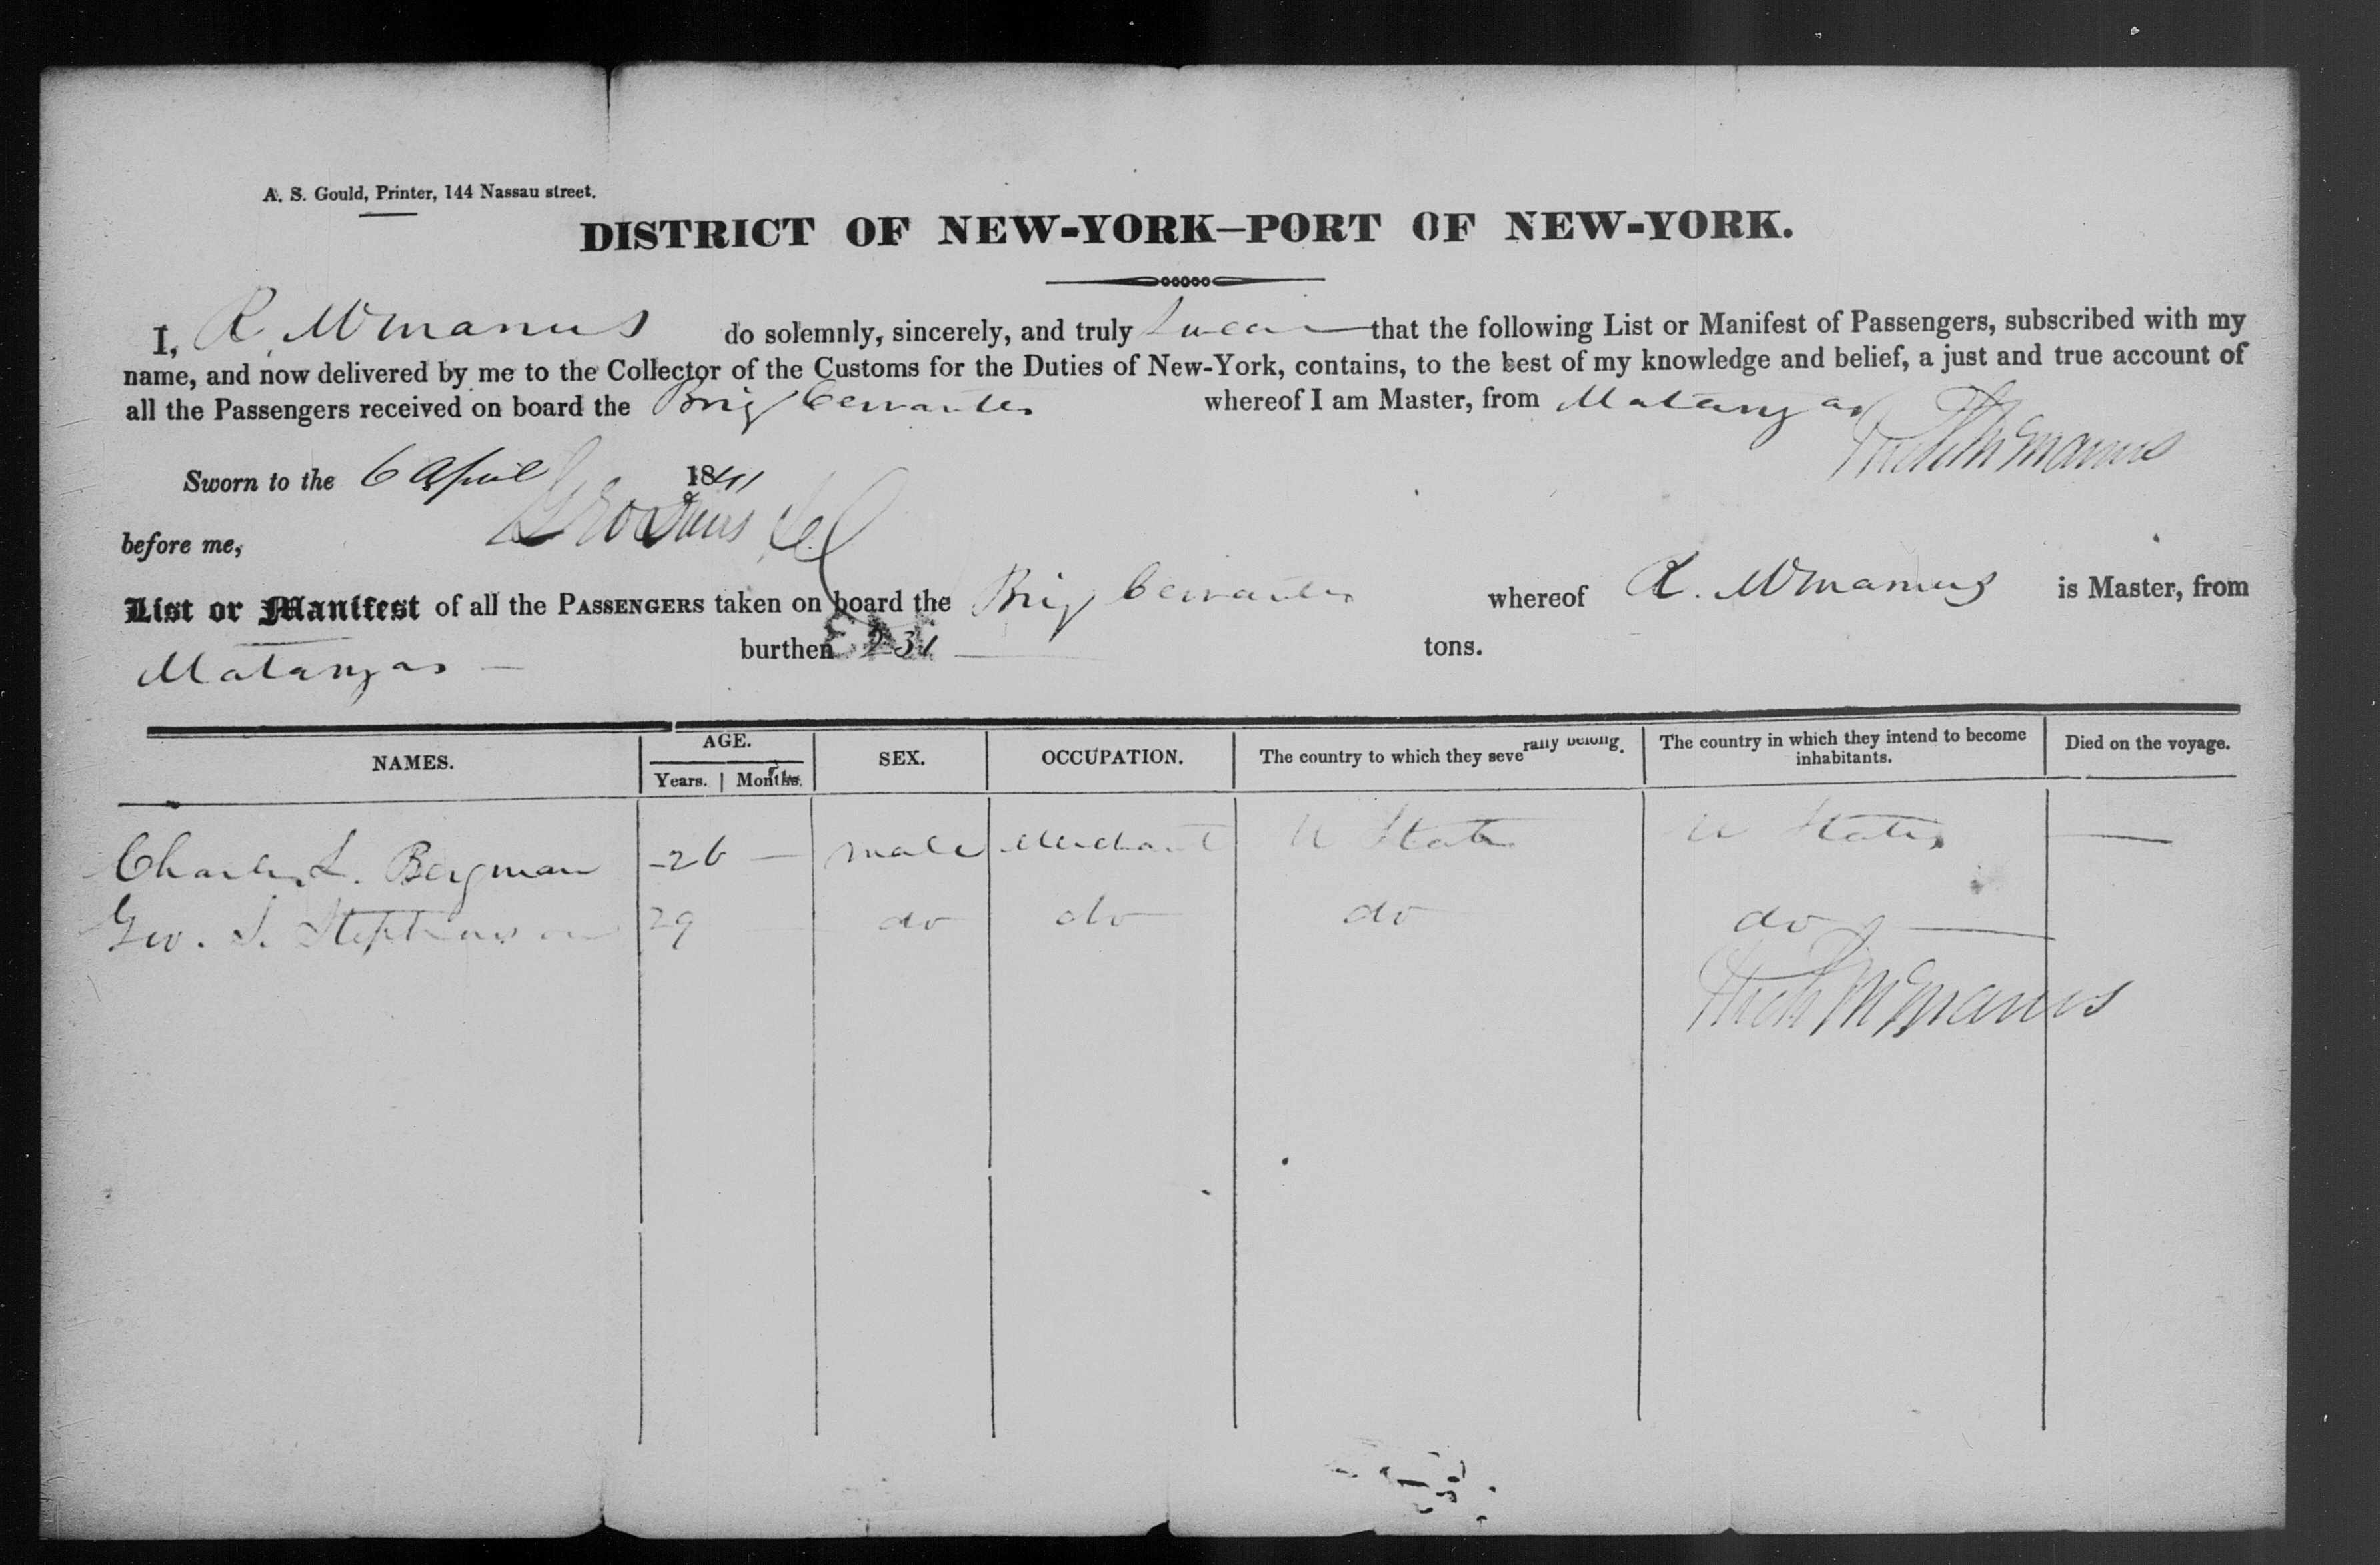 A. S. Gould, Printer, 144 Nassau street.
DISTRICT OF NEW-YORK—PORT OF NEW-YORK.
I, R. McManus do solemnly, sincerely, and truly swear that the following List or Manifest of Passengers, subscribed with my
name, and now delivered by me to the Collector of the Customs for the Duties of New-York, contains, to the best of my knowledge and belief, a just and true account of
all the Passengers received on board the Brig Cervantes whereof I am Master, from Matanzas
Rich McManus
Sworn to the 6 April 1841
before me,
List or Manifest of all the PASSENGERS taken on board the Brig Cervantes whereof R. McManus is Master, from
Matanzas — burthen 231 tons.
NAMES. AGE. Years. Months. SEX. OCCUPATION. The country to which they severally belong. The country in which they intend to become inhabitants. Died on the voyage.
Charles L. Bergman 26 — male Merchant U States U States —
Geo. S. Stephenson 29 do do do do —
Rich McManus